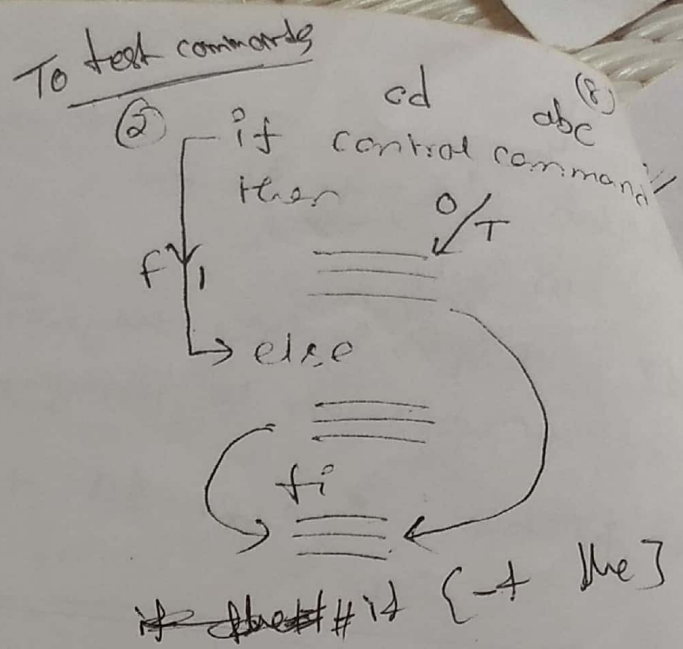 To test commands
(8)
cd abc
(2) if control command
then
0/T
f 1
else
fi
# if